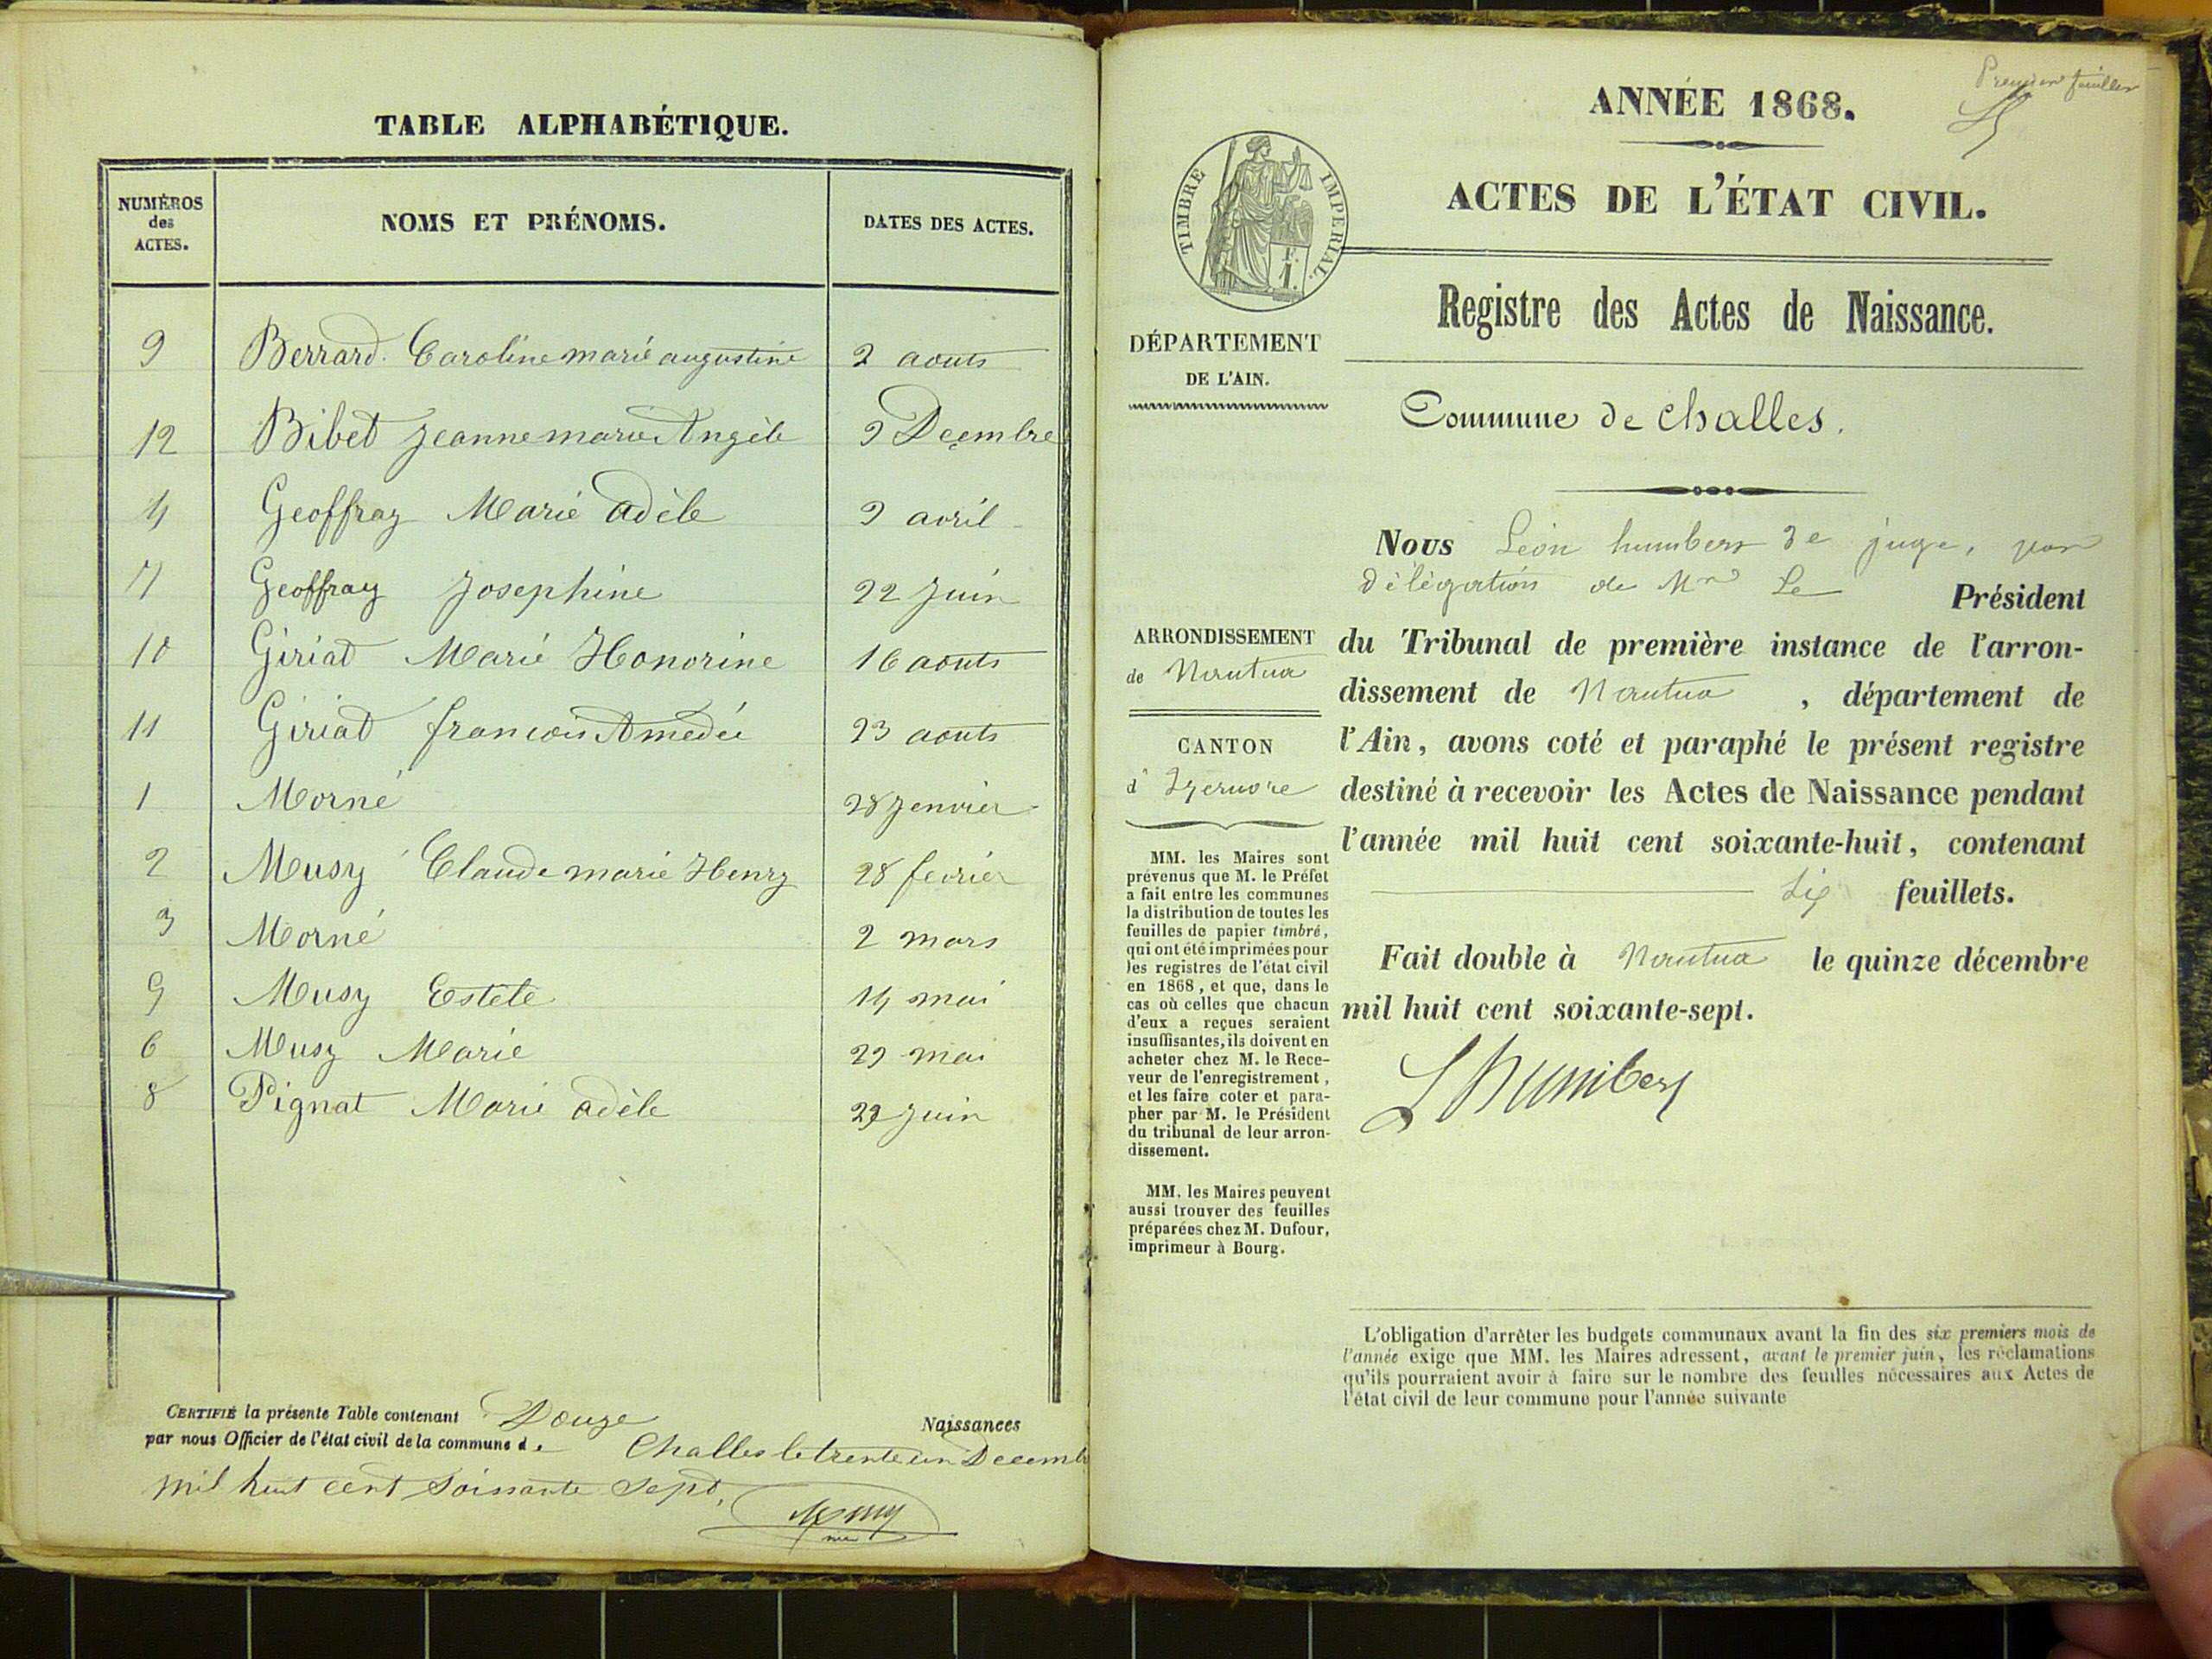 TABLE ALPHABÉTIQUE.
NUMÉROS des ACTES.
NOMS ET PRÉNOMS.
DATES DES ACTES.
9 Berrard Caroline marie augustine 2 aouts
12 Bibet Jeanne marie Angèle 9 Decembre
4 Geoffray Marie adèle 9 avril
7 Geoffray Josephine 22 Juin
10 Giriat Marie Honorine 16 aouts
11 Giriat francois Amedée 23 aouts
1 Morné 28 Jenvier
2 Musy Claude marie Henry 28 fevrier
3 Morné 2 mars
5 Musy Estele 14 mai
6 Musy Marie 29 mai
8 Pignat Marie adèle 29 Juin
CERTIFIÉ la présente Table contenant Douze Naissances
par nous Officier de l'état civil de la commune de Challes le trente un Decemb
mil huit cent Soissante Sept,
Musy
Premier feuillet
ANNÉE 1868.
ACTES DE L'ÉTAT CIVIL.
TIMBRE IMPERIAL.
Registre des Actes de Naissance.
DÉPARTEMENT
DE L'AIN.
Commune de Challes.
Nous Léon humbert 3e juge, par
délégation de Mr Le Président
du Tribunal de première instance de l'arron-
dissement de Nantua, département de
l'Ain, avons coté et paraphé le présent registre
destiné à recevoir les Actes de Naissance pendant
l'année mil huit cent soixante-huit, contenant
Six feuillets.
Fait double à Nantua le quinze décembre
mil huit cent soixante-sept.
L Humbert
ARRONDISSEMENT
de Nantua
CANTON
d'Izernore
MM. les Maires sont
prévenus que M. le Préfet
a fait entre les communes
la distribution de toutes les
feuilles de papier timbré,
qui ont été imprimées pour
les registres de l'état civil
en 1868, et que, dans le
cas où celles que chacun
d'eux a reçues seraient
insuffisantes, ils doivent en
acheter chez M. le Rece-
veur de l'enregistrement,
et les faire coter et para-
pher par M. le Président
du tribunal de leur arron-
dissement.
MM. les Maires peuvent
aussi trouver des feuilles
préparées chez M. Dufour,
imprimeur à Bourg.
L'obligation d'arrêter les budgets communaux avant la fin des six premiers mois de
l'année exige que MM. les Maires adressent, avant le premier juin, les réclamations
qu'ils pourraient avoir à faire sur le nombre des feuilles nécessaires aux Actes de
l'état civil de leur commune pour l'année suivante